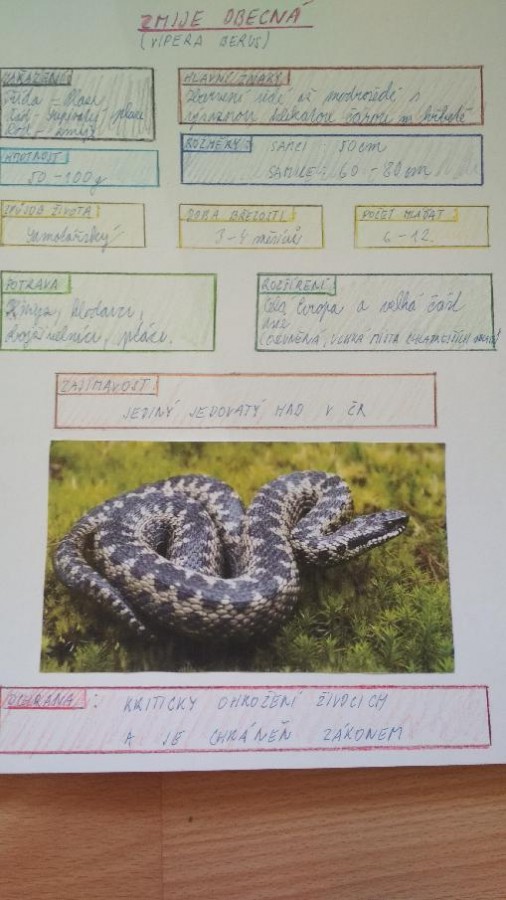 ZMIJE OBECNÁ
(VIPERA BERUS)
ZAŘAZENÍ:
Třída - Plazi
Řád - šupinatý plazi
Rod - zmije
HLAVNÍ ZNAKY:
Zbarvení šedé až modrošedé s
výraznou klikatou čárou na hřbetě
HMOTNOST:
50 - 100g
ROZMĚRY: SAMCI - 50 cm
SAMICE - 60 - 80 cm
ZPŮSOB ŽIVOTA:
Samotářský
DOBA BŘEZOSTI:
3-4 měsíců
POČET MLÁĎAT:
6-12.
POTRAVA
Hmyz, hlodavci,
obojživelníci, ptáci.
ROZŠÍŘENÍ:
Celá Evropa a velká část
Asie
VLHKÁ MÍSTA
ZAJÍMAVOST:
JEDINÝ JEDOVATÝ HAD V ČR
OCHRANA: KRITICKY OHROŽENÍ ŽIVOČICH
A JE CHRÁNĚŇ ZÁKONEM